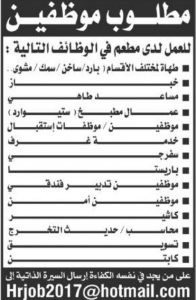 مطلوب موظفين
للعمل لدى مطعم في الوظائف التالية :
طهاة لمختلف الأقسام (بارد/ساخن/سمك/مشوى..
خباز
مساعد طاهي
عمال مطبخ (ستيوارد)
موظفين/ موظفات إستقبال
خدمة غرف
سفرجي
باريستا
موظفين تدبير فندقي
موظفين أمن
كاشير
محاسب/ حديث التخرج
تسويق
كابتن
على من يجد في نفسه الكفاءة إرسال السيرة الذاتية إلى
Hrjob2017@hotmail.com